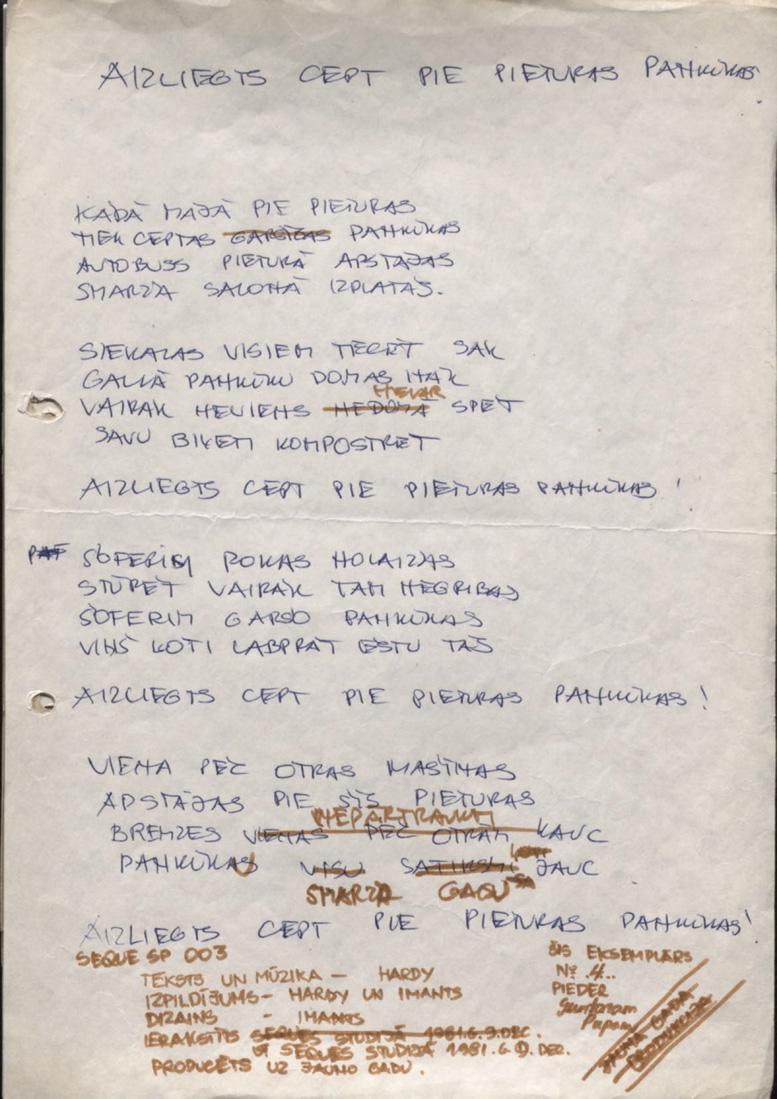 AIZLIEGTS CEPT PIE PIETURAS PANKŪKAS
KĀDĀ MĀJĀ PIE PIETURAS
TIEK CEPTAS GARŠĪGAS PANKŪKAS
AUTOBUSS PIETURĀ APSTĀJAS
SMARŽA SALONĀ IZPLATĀS.
SIEKALAS VISIEM TECĒT SĀK
GALVĀ PANKŪKU DOMAS NĀK
NEVAR
VAIRĀK NEVIENS NEDOMĀ SPĒT
SAVU BIĻETI KOMPOSTRĒT
AIZLIEGTS CEPT PIE PIETURAS PANKŪKAS!
ŠOFERIM ROKAS NOLAIŽAS
STŪRĒT VAIRĀK TAM NEGRIBAS
ŠOFERIM GARŠO PANKŪKAS
VIŅŠ ĻOTI LABPRĀT ĒSTU TĀS
AIZLIEGTS CEPT PIE PIETURAS PANKŪKAS!
VIENA PĒC OTRAS MAŠĪNAS
APSTĀJAS PIE ŠĪS PIETURAS
NEPĀRTRAUKTI
BREMZES VIENAS PĒC OTRĀM KAUC
PANKŪKAS VISU SATIKSMI JAUC
SMARŽA GAISU
AIZLIEGTS CEPT PIE PIETURAS PANKŪKAS!
SEQUE SP 003
TEKSTS UN MŪZIKA - HARDY
IZPILDĪJUMS - HARDY UN IMANTS
DIZAINS - IMANTS
IERAKSTĪTS SEQUES STUDIJĀ 1981.G.9.DEC.
SEQUES STUDIJĀ 1981.G.9.DEC.
PRODUCĒTS UZ JAUNO GADU.
ŠIS EKSEMPLĀRS
No 4..
PIEDER
JAUNĀ GADA
PRODUKCIJA